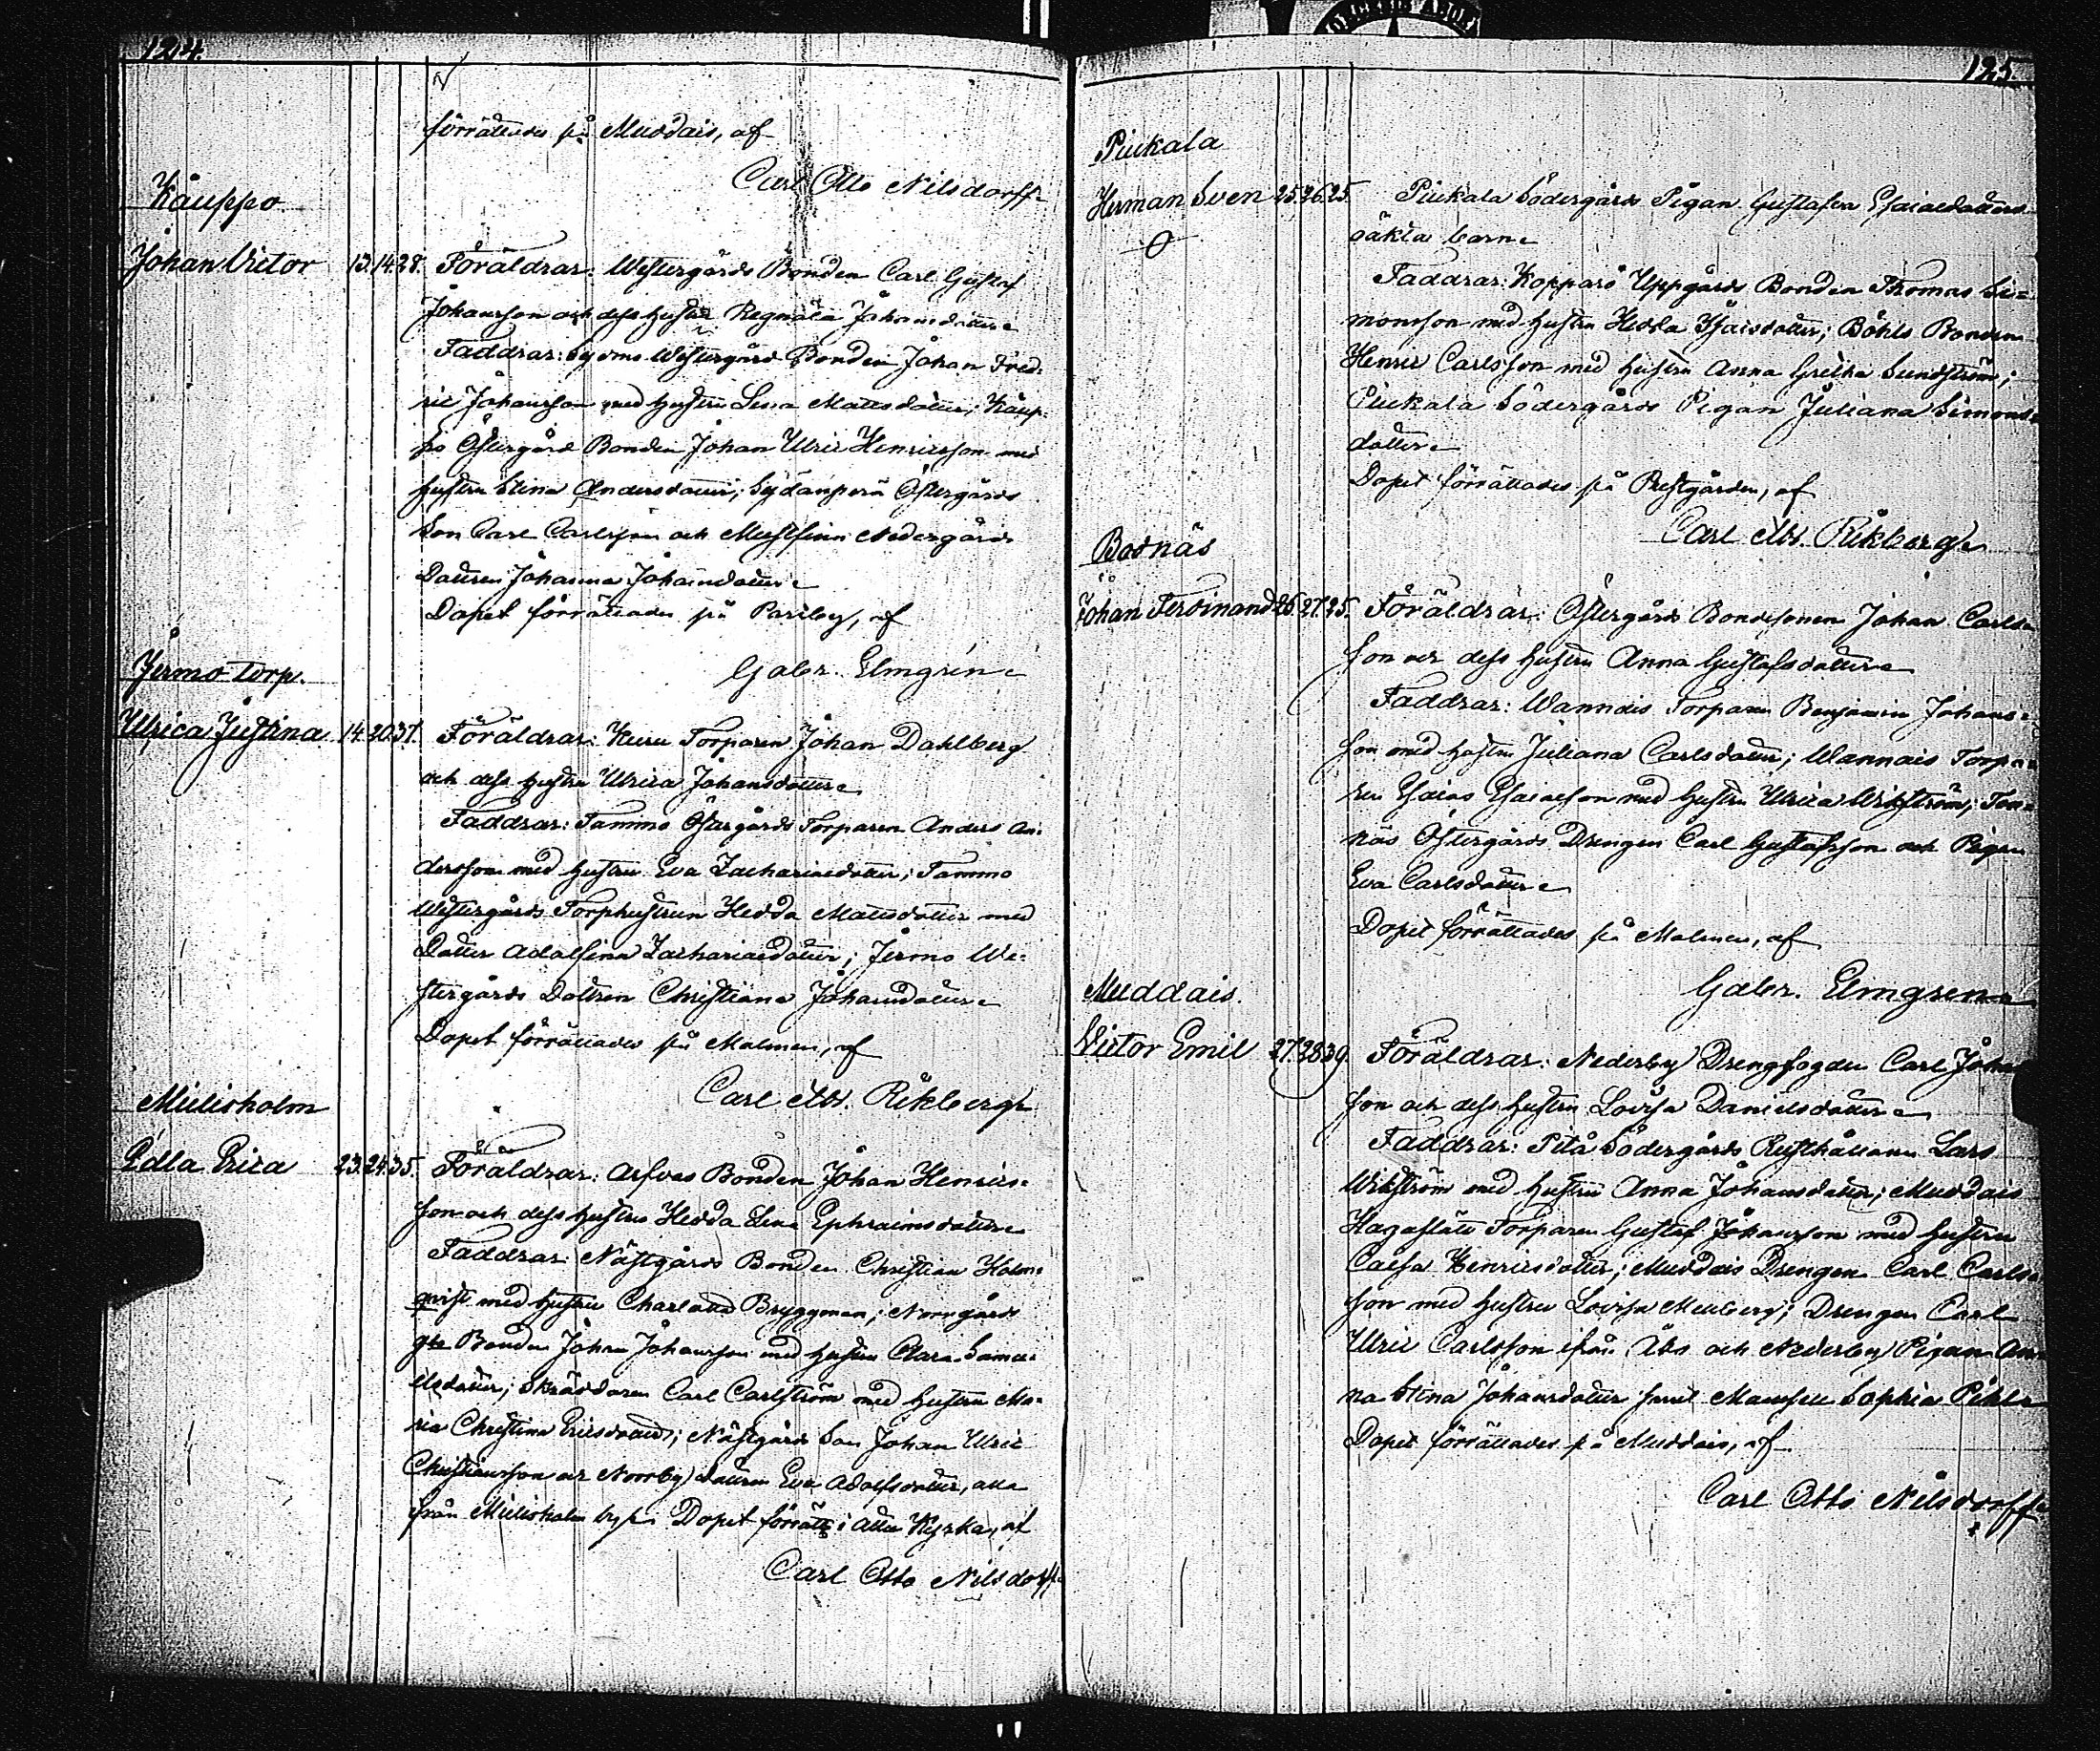 124.
förrättades på Muddais, af
Carl Otto Nilsdorff
Kauppo
Johan Victor 13. 14. 28. Föräldrar: Westergårds Bonden Carl Gustaf
Johansson och dess hustru Regnäla Johansdotter
Faddrar: Westergård Bonden Johan Fred-
ric Johansson med hustru Lena Mattsdotter; Kaup-
po Östergård Bonden Johan Ulric Henricsson med
hustru Stina Andersdotter; Sydänperä Östergårds
Son Carl Carlsson och Mustfinn Nedergårds
Dottren Johanna Johansdotter
Dopet förrättades på Pariby, af
Gabr. Elmgrén
Jermo torp.
Ulrica Justina 14. 20. 37. Föräldrar: Kuru Torparen Johan Dahlberg
och dess hustru Ulrica Johansdotter
Faddrar: Tammo Östergårds Torparen Anders An-
dersson med hustru Eva Zachariaedotter; Tammo
Westergårds Torphustrun Hedda Mattsdotter med
Dotter Adolfina Zachariaedotter; Jermo We-
stergårds Dottren Christiana Johansdotter
Dopet förrättades på Malmen, af
Carl Ab. Rikberg
Mielisholm
Edla Erica 23. 24. 35. Föräldrar: Arfvas Bonden Johan Henrics-
son och dess hustru Hedda Lena Ephraimsdotter
Faddrar: Nästgårds Bonden Christian Holm-
qvist med hustru Charlotta Bryggman; Norrgårds
Bonden Johan Johansson med hustru Clara Samu-
elsdotter; Skräddaren Carl Carlström med hustru Ma-
ria Christina Ericsdotter; Nästgårds Son Johan Ulric
Christiansson och Norrby dottren Eva Adolfsdotter, alla
från Mielisholm by. Dopet förrätts i Kyrka, af
Carl Otto Nilsdorff
125.
Piukala
Herman Sven 25. 26. 25. Piukala Södergårds Pigan Gustafva Esaiaedotters
oäkta barn
Faddrar: Kopparö Uppgårds Bonden Thomas Si-
monsson med hustru Hedda Esaisdotter; Böhle Bonden
Henric Carlsson med hustru Anna Gretha Sundström;
Piukala Södergårds Pigan Juliana Simons-
dotter
Dopet förrättades på Prestgården, af
Carl Ab. Rikberg
Bodnäs
Johan Ferdinand 26. 27. 25. Föräldrar: Östergårds Bondesonen Johan Carls-
son och dess hustru Anna Gustafsdotter
Faddrar: Wannais Torparen Benjamin Johans-
son med hustru Juliana Carlsdotter; Wannais Torpa-
ren Esaias Esaiaeson med hustru Ulrica Wikström;
näs Östergårds Drengen Carl Gustafsson och Pigan
Eva Carlsdotter
Dopet förrättades på Malmen, af
Gabr. Elmgren
Muddais.
Victor Emil 27. 28. 39. Föräldrar: Nederby Drengfogden Carl
son och dess hustru Lovisa Danielsdotter
Faddrar: Pitå Södergårds Rusthållaren Lars
Wikström med hustru Anna Johansdotter; Muddais
Hagaslätt Torparen Gustaf Johansson med hustru
Caisa Henricsdotter; Muddais Drengen Carl Carls-
son med hustru Lovisa; Drengen Carl
Ulric Carlsson ifrån Åbo och Nederby Pigan An-
na Stina Johansdotter samt Mamsell Sophia
Dopet förrättades på Muddais, af
Carl Otto Nilsdorff